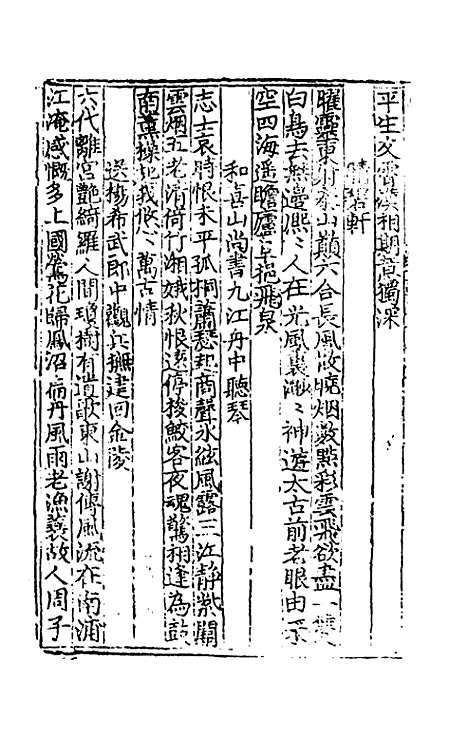 平生久霄漢相期意獨深
晴碧軒
曜靈東射泰山巔六合長風散曉烟數點彩雲飛欲盡一雙
白鳥去無邊熙〻人在光風裏渺〻神遊太古前老眼由來
空四海遥瞻廬阜挹飛泉
和喜山尚書九江舟中聽琴
志士哀時恨未平孤桐蕭瑟起商聲氷絃風露三江静紫關
雲烟五老清倚竹湘娥秋恨遠停梭鮫客夜魂驚相逢為鼓
南薰操我悠〻萬古情
送楊希武郎中觀兵撫建回金陵
六代離宮艶綺羅人間瓊樹有遺歌東山謝傅風流在南浦
江淹感慨多上國鶯花歸鳳沼病舟風雨老漁蓑故人周子